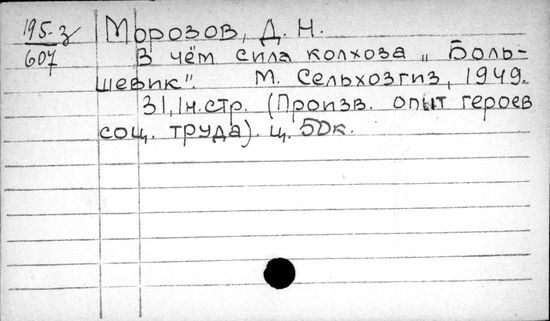 195-з Морозов, Д. Н.
607 В чём сила колхоза „Боль-
шевик". М. Сельхозгиз, 1949.
31,1н.стр. (Произв. опыт героев
соц. труда). ц. 50к.